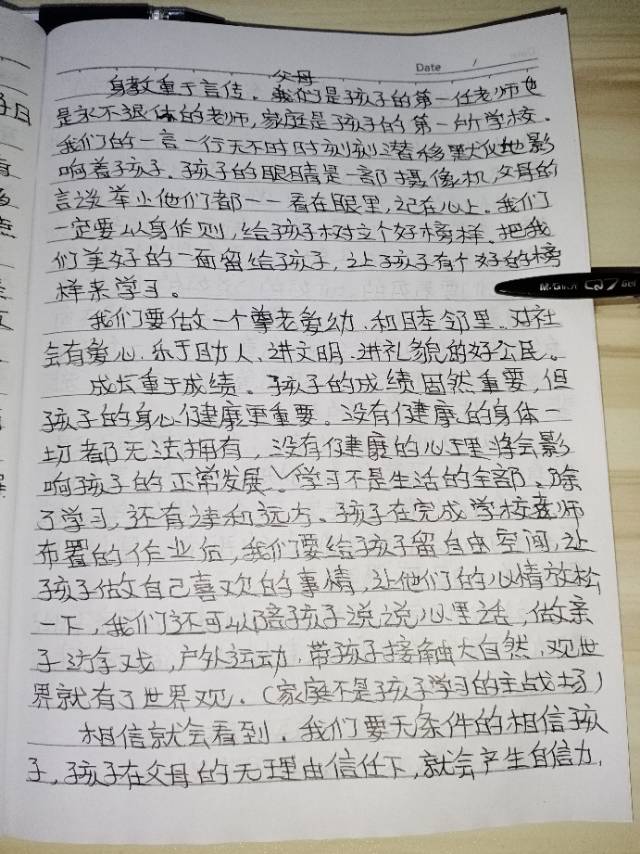 Date /
父母
身教重于言传。我们是孩子的第一任老师也
是永不退休的老师,家庭是孩子的第一所学校。
我们的一言一行无不时时刻刻潜移默化地影
响着孩子。孩子的眼睛是一部摄像机,父母的
言谈举止他们都一一看在眼里,记在心上。我们
一定要以身作则,给孩子树立个好榜样。把我
们美好的一面留给孩子,让孩子有个好的榜
样来学习。
我们要做一个尊老爱幼、和睦邻里、对社
会有爱心、乐于助人、讲文明、讲礼貌的好公民。
成长重于成绩。孩子的成绩固然重要,但
孩子的身心健康更重要。没有健康的身体一
切都无法拥有,没有健康的心理将会影
响孩子的正常发展。学习不是生活的全部。除
了学习,还有诗和远方。孩子在完成学校老师
布置的作业后,我们要给孩子留自由空间,让
孩子做自己喜欢的事情,让他们的心情放松
一下,我们还可以陪孩子说说心里话,做亲
子游戏,户外运动,带孩子接触大自然,观世
界就有了世界观。(家庭不是孩子学习的主战场)
相信就会看到。我们要无条件的相信孩
子,孩子在父母的无理由信任下,就会产生自信力,